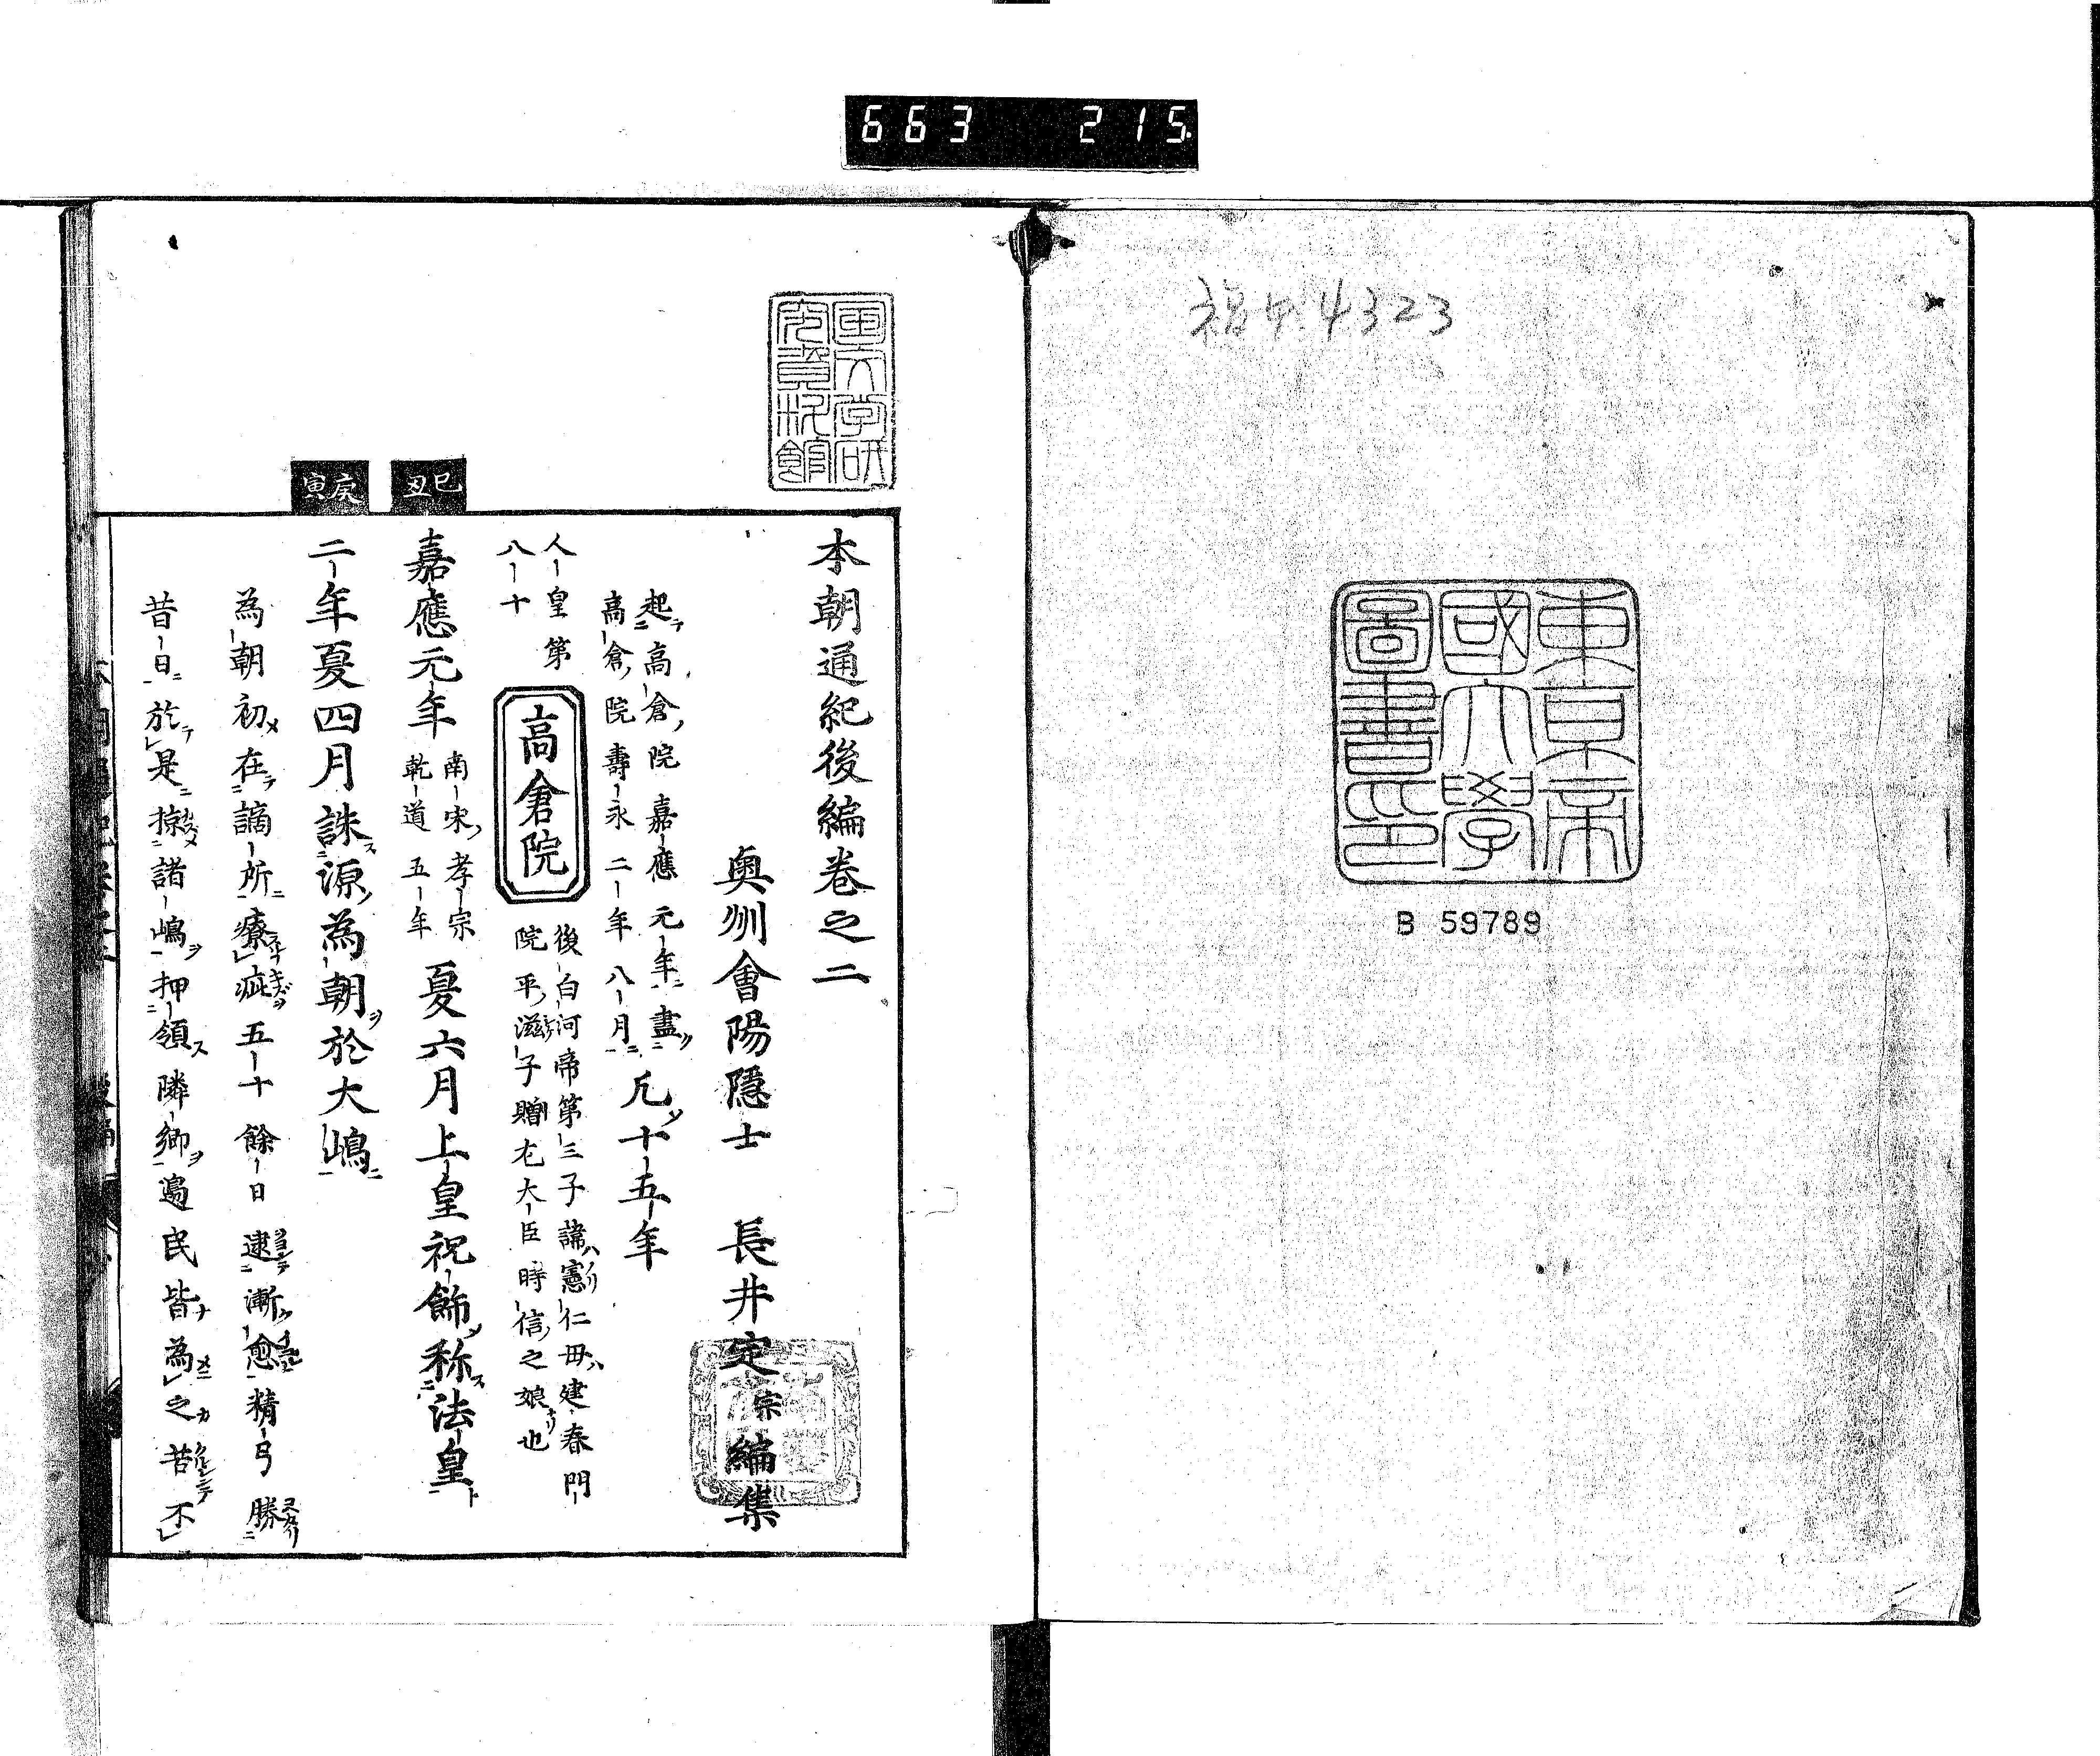 663 215
福甲 4323
東京帝
國大學
圖書印
B 59789
国文学研
究資料館
本朝通紀後編卷之二
奥州會陽隱士 長井定宗編集
起高倉院嘉應元年盡
高倉院壽永二年八月
凡十五年
人皇第
八十
高倉院
後白河帝第三子諱憲仁母建春門
院平滋子贈左大臣時信之娘也
己丑
嘉應元年
南宋孝宗
乾道五年
夏六月上皇祝飾称法皇
庚寅
二年夏四月誅源為朝於大嶋
為朝初在謫所療疵五十餘日逮漸愈精弓勝
昔日於是掠諸嶋押領隣郷邊民皆為之苦不